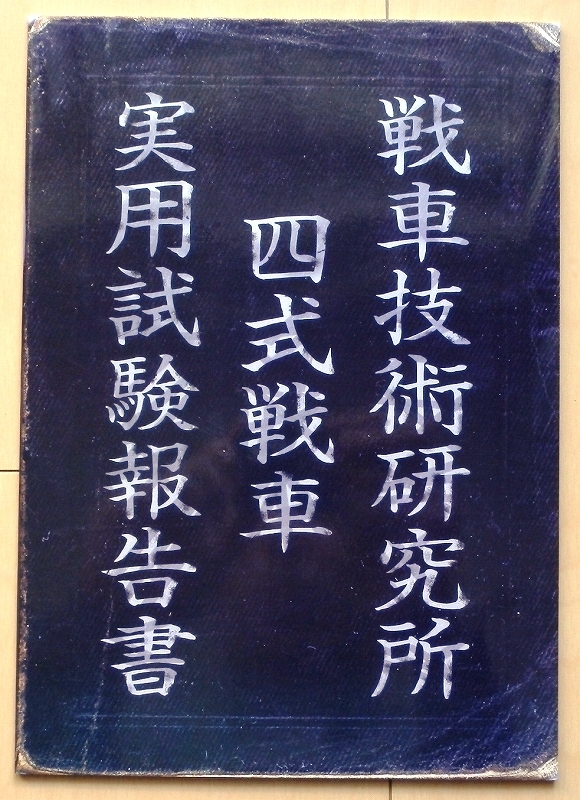 戦車技術研究所
四式戦車
実用試験報告書